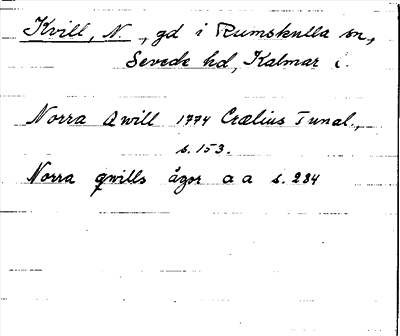 Kvill, N. , gd i Rumskulla sn,
Sevede hd, Kalmar l.
Norra Qwill 1774 Crælius Tunal.,
s. 153.
Norra qwills ågor a a s. 284